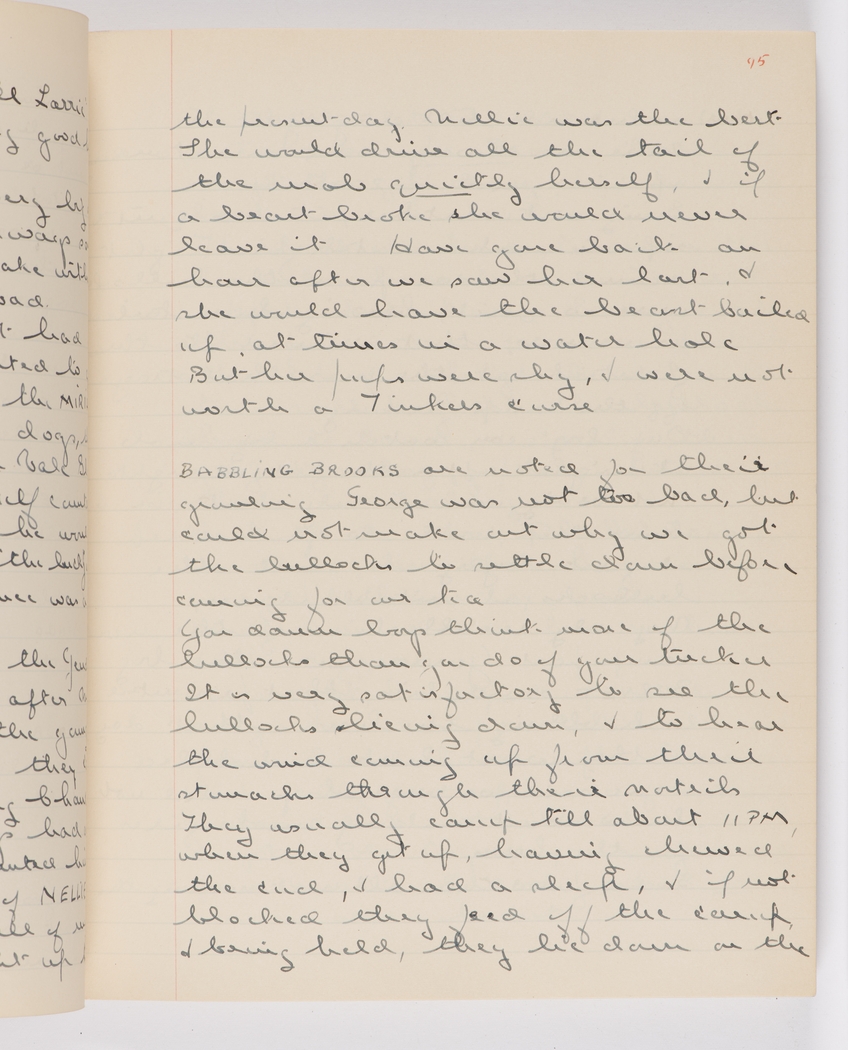 95
the present-day. Nellie was the best
She would drive all the tail of
the mob quietly herself, & if
a beast broke she would never
leave it Have gone back an
hour after we saw her last, &
she would have the beast bailed
up, at times in a water hole
But her pups were shy, & were not
worth a Tinkers curse
BABBLING BROOKS are noted for their
growling George was not too bad, but
could not make out why we got
the bullocks to settle down before
coming for our tea
You damn boys think more of the
bullocks than you do of your tucker
It is very satisfactory to see the
bullocks lieing down, & to hear
the wind coming up from their
stomachs through their nostrils
They usually camp till about 11 PM,
when they get up, having chewed
the cud, & had a sleep, & if not
blocked they feed off the camp,
& being held, they lie down on the
ll Larrie
g good
ery big
warp
ake with
oad.
t had
nted to
the MIR
dogs,
Vale
elf
he
the
nce was
the
after
the
they
g
s had
anted
of NELLIE
ll of
it up